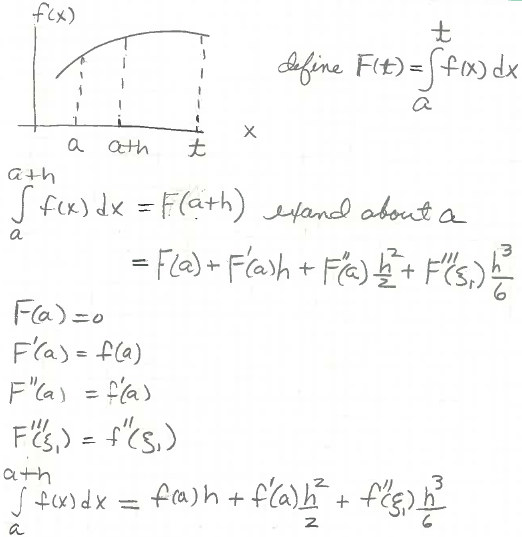 f(x)
define F(t) = ∫ₐᵗ f(x) dx
a a+h t x
∫ₐᵃ⁺ʰ f(x) dx = F(a+h) expand about a
= F(a) + F'(a)h + F''(a) h²/2 + F'''(ξ₁) h³/6
F(a) = 0
F'(a) = f(a)
F''(a) = f'(a)
F'''(ξ₁) = f''(ξ₁)
∫ₐᵃ⁺ʰ f(x) dx = f(a)h + f'(a) h²/2 + f''(ξ₁) h³/6